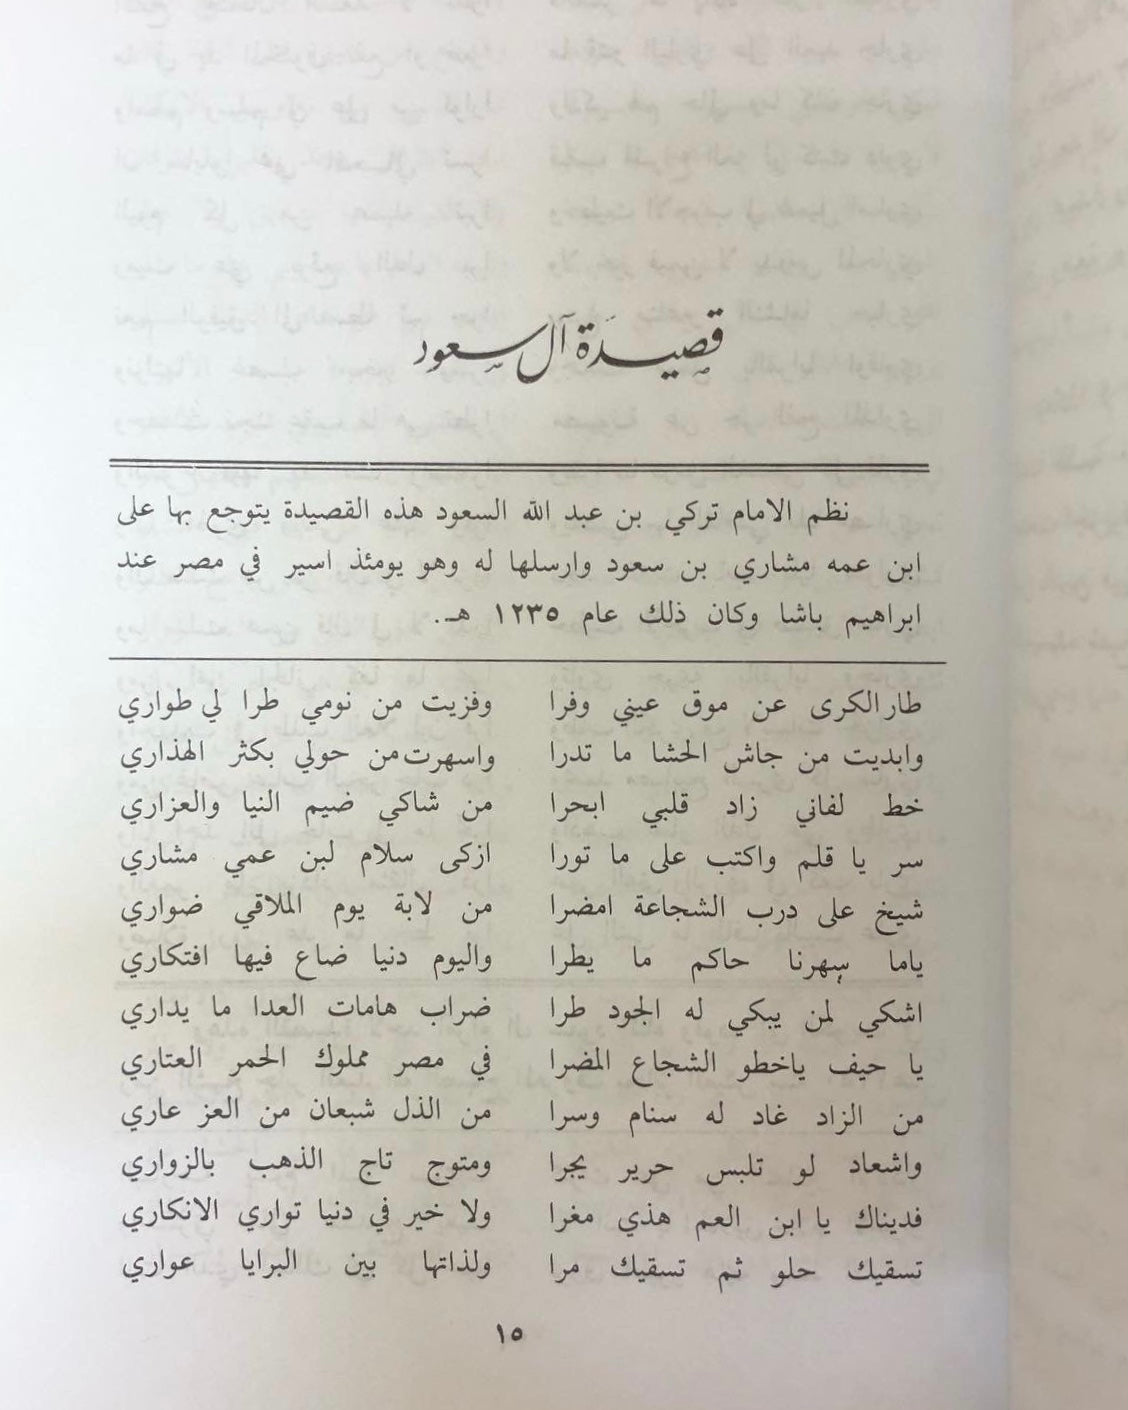 قصيدة آل سعود
نظم الامام تركي بن عبد الله السعود هذه القصيدة يتوجع بها على
ابن عمه مشاري بن سعود وارسلها له وهو يومئذ اسير في مصر عند
ابراهيم باشا وكان ذلك عام ١٢٣٥ هـ.
طار الكرى عن موق عيني وفرا وفزيت من نومي طرا لي طواري
وابديت من جاش الحشا ما تدرا واسهرت من حولي بكثر الهذاري
خط لفاني زاد قلبي ابحرا من شاكي ضيم النيا والعزاري
سر يا قلم واكتب على ما تورا ازكى سلام لبن عمي مشاري
شيخ على درب الشجاعة امضرا من لابة يوم الملاقي ضواري
ياما سهرنا حاكم ما يطرا واليوم دنيا ضاع فيها افتكاري
اشكي لمن يبكي له الجود طرا ضراب هامات العدا ما يداري
يا حيف ياخطو الشجاع المضرا في مصر مملوك الحمر العتاري
من الزاد غاد له سنام وسرا من الذل شبعان من العز عاري
واشعاد لو تلبس حرير يجرا ومتوج تاج الذهب بالزواري
فديناك يا ابن العم هذي مغرا ولا خير في دنيا تواري الانكاري
تسقيك حلو ثم تسقيك مرا ولذاتها بين البرايا عواري
١٥